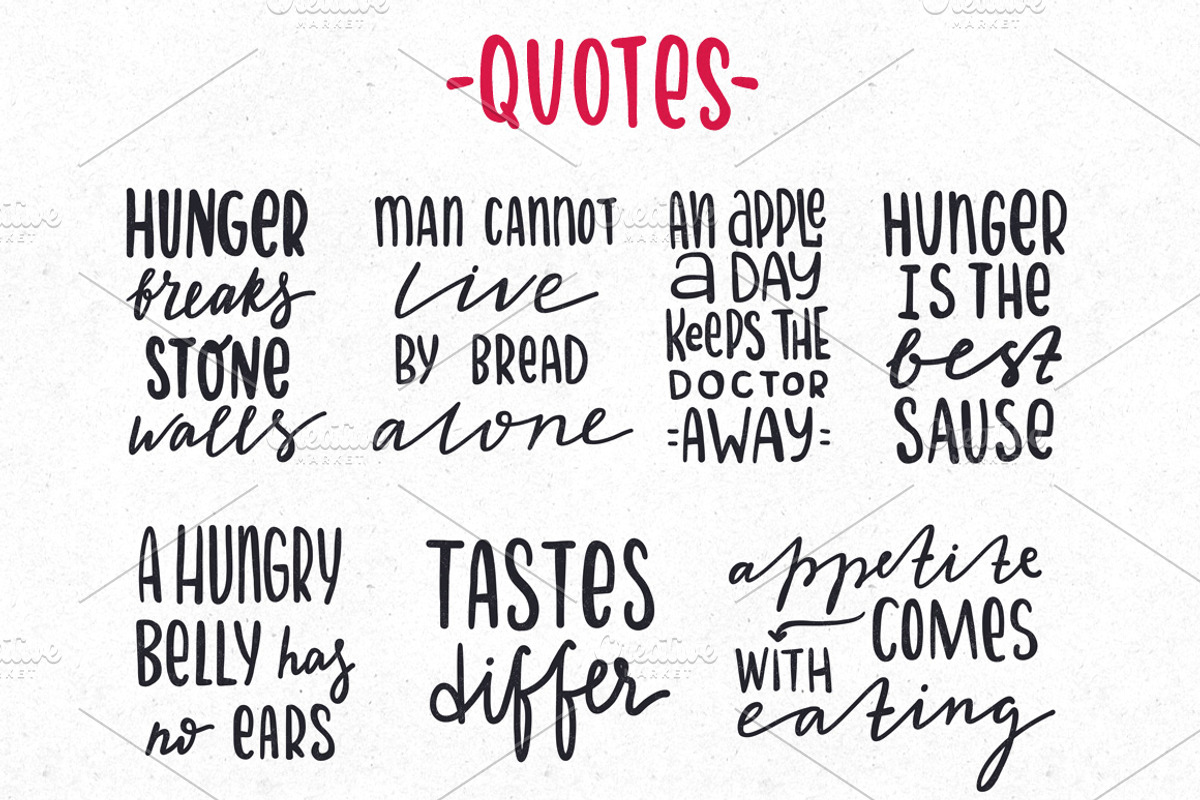 -QUOTES-
HUNGER
breaks
STONE
walls
MAN CANNOT
live
BY BREAD
alone
AN APPLE
A DAY
KEEPS THE
DOCTOR
=AWAY=
HUNGER
IS THE
best
SAUSE
A HUNGRY
BELLY has
no EARS
TASTES
differ
appetite
COMES
WITH
eating
Creative
MARKET